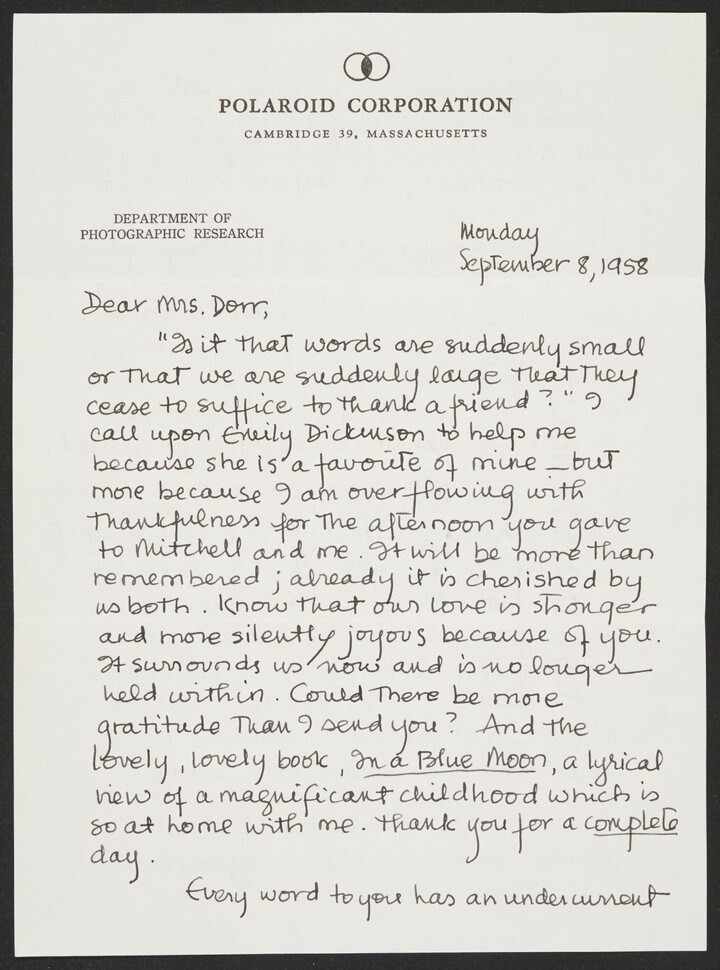 POLAROID CORPORATION
CAMBRIDGE 39, MASSACHUSETTS
DEPARTMENT OF
PHOTOGRAPHIC RESEARCH
Monday
September 8, 1958
Dear Mrs. Dorr,
"Is it that words are suddenly small
or that we are suddenly large that they
cease to suffice to thank a friend?" I
call upon Emily Dickinson to help me
because she is a favorite of mine — but
more because I am overflowing with
thankfulness for the afternoon you gave
to Mitchell and me. It will be more than
remembered; already it is cherished by
us both. Know that our love is stronger
and more silently joyous because of you.
It surrounds us now and is no longer
held within. Could there be more
gratitude than I send you? And the
lovely, lovely book, In a Blue Moon, a lyrical
view of a magnificant childhood which is
so at home with me. Thank you for a complete
day.
Every word to you has an undercurrent